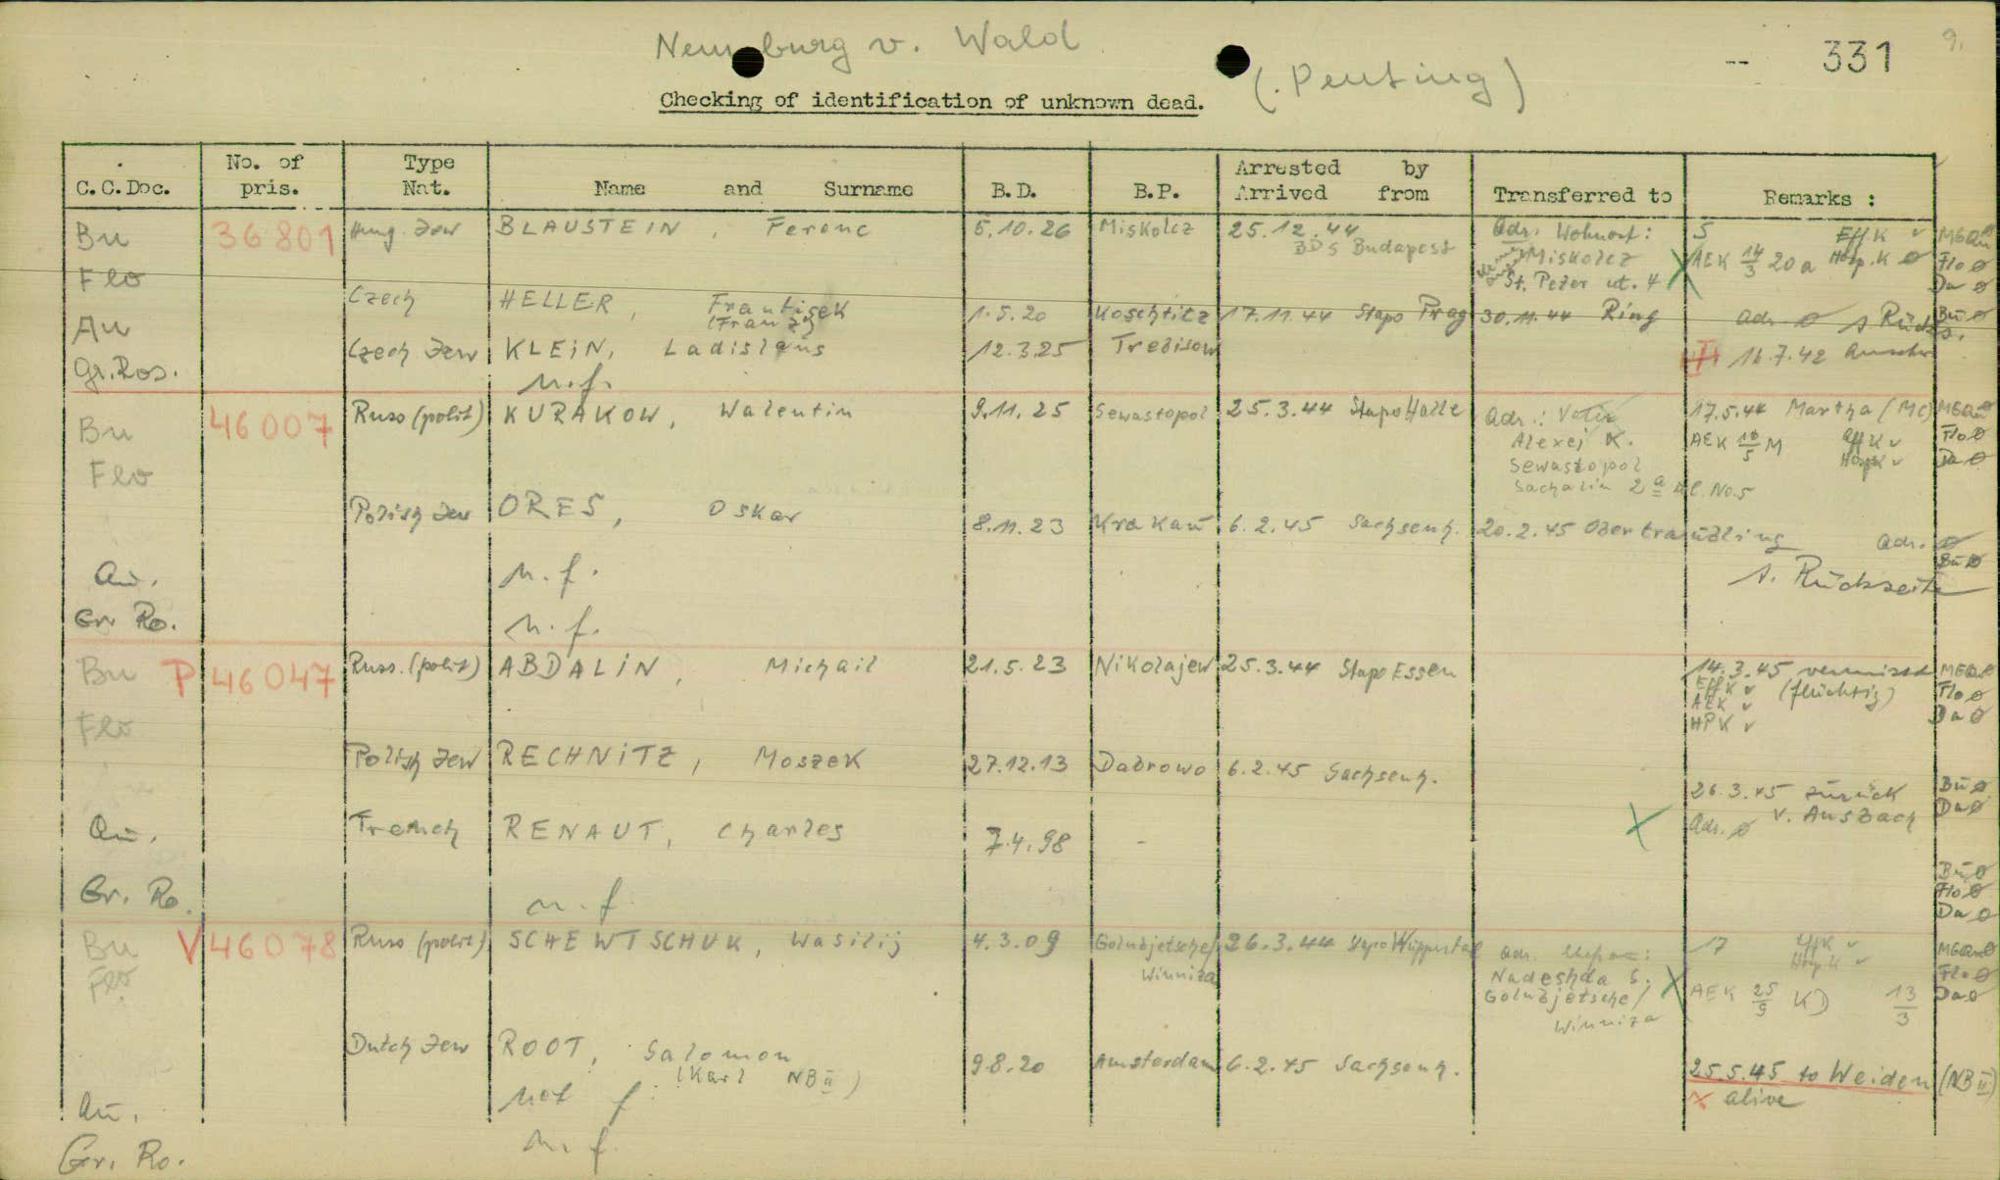 Neunburg v. Wald
(Penting)
-- 331
9.
Checking of identification of unknown dead.
C.C.Doc. No. of pris. Type Nat. Name and Surname B.D. B.P. Arrested by Arrived from Transferred to Remarks :
Bu 36801 Hung. Jew BLAUSTEIN, Ferenc 5.10.26 Miskolcz 25.12.44 Adr. Wohnort: 5 Eff.K v
BDS Budapest Miskolcz AEK 14/3 20a Hosp.K ø Flo ø
Flo St. Peter ut. 4 X Da ø
Czech HELLER, Frantisek 1.5.20 Koschtitz 17.11.44 Stapo Prag 30.11.44 Ring Adr. ø Bu ø
(Franz)
Au Czech Jew KLEIN, Ladislaus 12.3.25 Trebisow 16.7.42
Gr.Ros. n.f.
Bu 46007 Russ (polit) KURAKOW, Walentin 9.11.25 Sewastopol 25.3.44 Stapo Halle Adr.: Vater 17.5.44 Martha (Mc)
Alexej K. AEK 18/5 M Eff K v Flo ø
Flo Sewastopol Hosp K v Da ø
Sachalin 2a No.5
Polish Jew ORES, Oskar 8.11.23 Krakau 6.2.45 Sachsenh. 20.2.45 Obertraubling Adr. ø
Bu ø
Au. n.f. s. Rückseite
Gr. Ro. n.f.
Bu P 46047 Russ. (polit) ABDALIN, Michail 21.5.23 Nikolajew 25.3.44 Stapo Essen 14.3.45 vermisst
Eff K v (flüchtig) Flo ø
AEK v
Flo HPK v Da ø
Polish Jew RECHNITZ, Moszek 27.12.13 Dabrowo 6.2.45 Sachsenh.
26.3.45 zurück Bu ø
v. Ansbach Da ø
Au. French RENAUT, Charles 7.4.98 - X Adr. ø
Bu ø
Flo ø
Gr. Ro. n.f. Da ø
Bu V 46078 Russ (polit) SCHEWTSCHUK, Wasilij 4.3.09 Golubjetsche/ 26.3.44 Stapo Wuppertal Adr. Ehefrau: 17 Eff K v
Winniza Hosp K v
Flo Nadeshda S. Flo ø
Golubjetsche/ X AEK 25/9 KD 13/3 Da ø
Winniza
Dutch Jew ROOT, Salomon 9.8.20 Amsterdam 6.2.45 Sachsenh.
(Karl NB II) 25.5.45 to Weiden (NB II)
Au. not f. x alive
Gr. Ro. n.f.